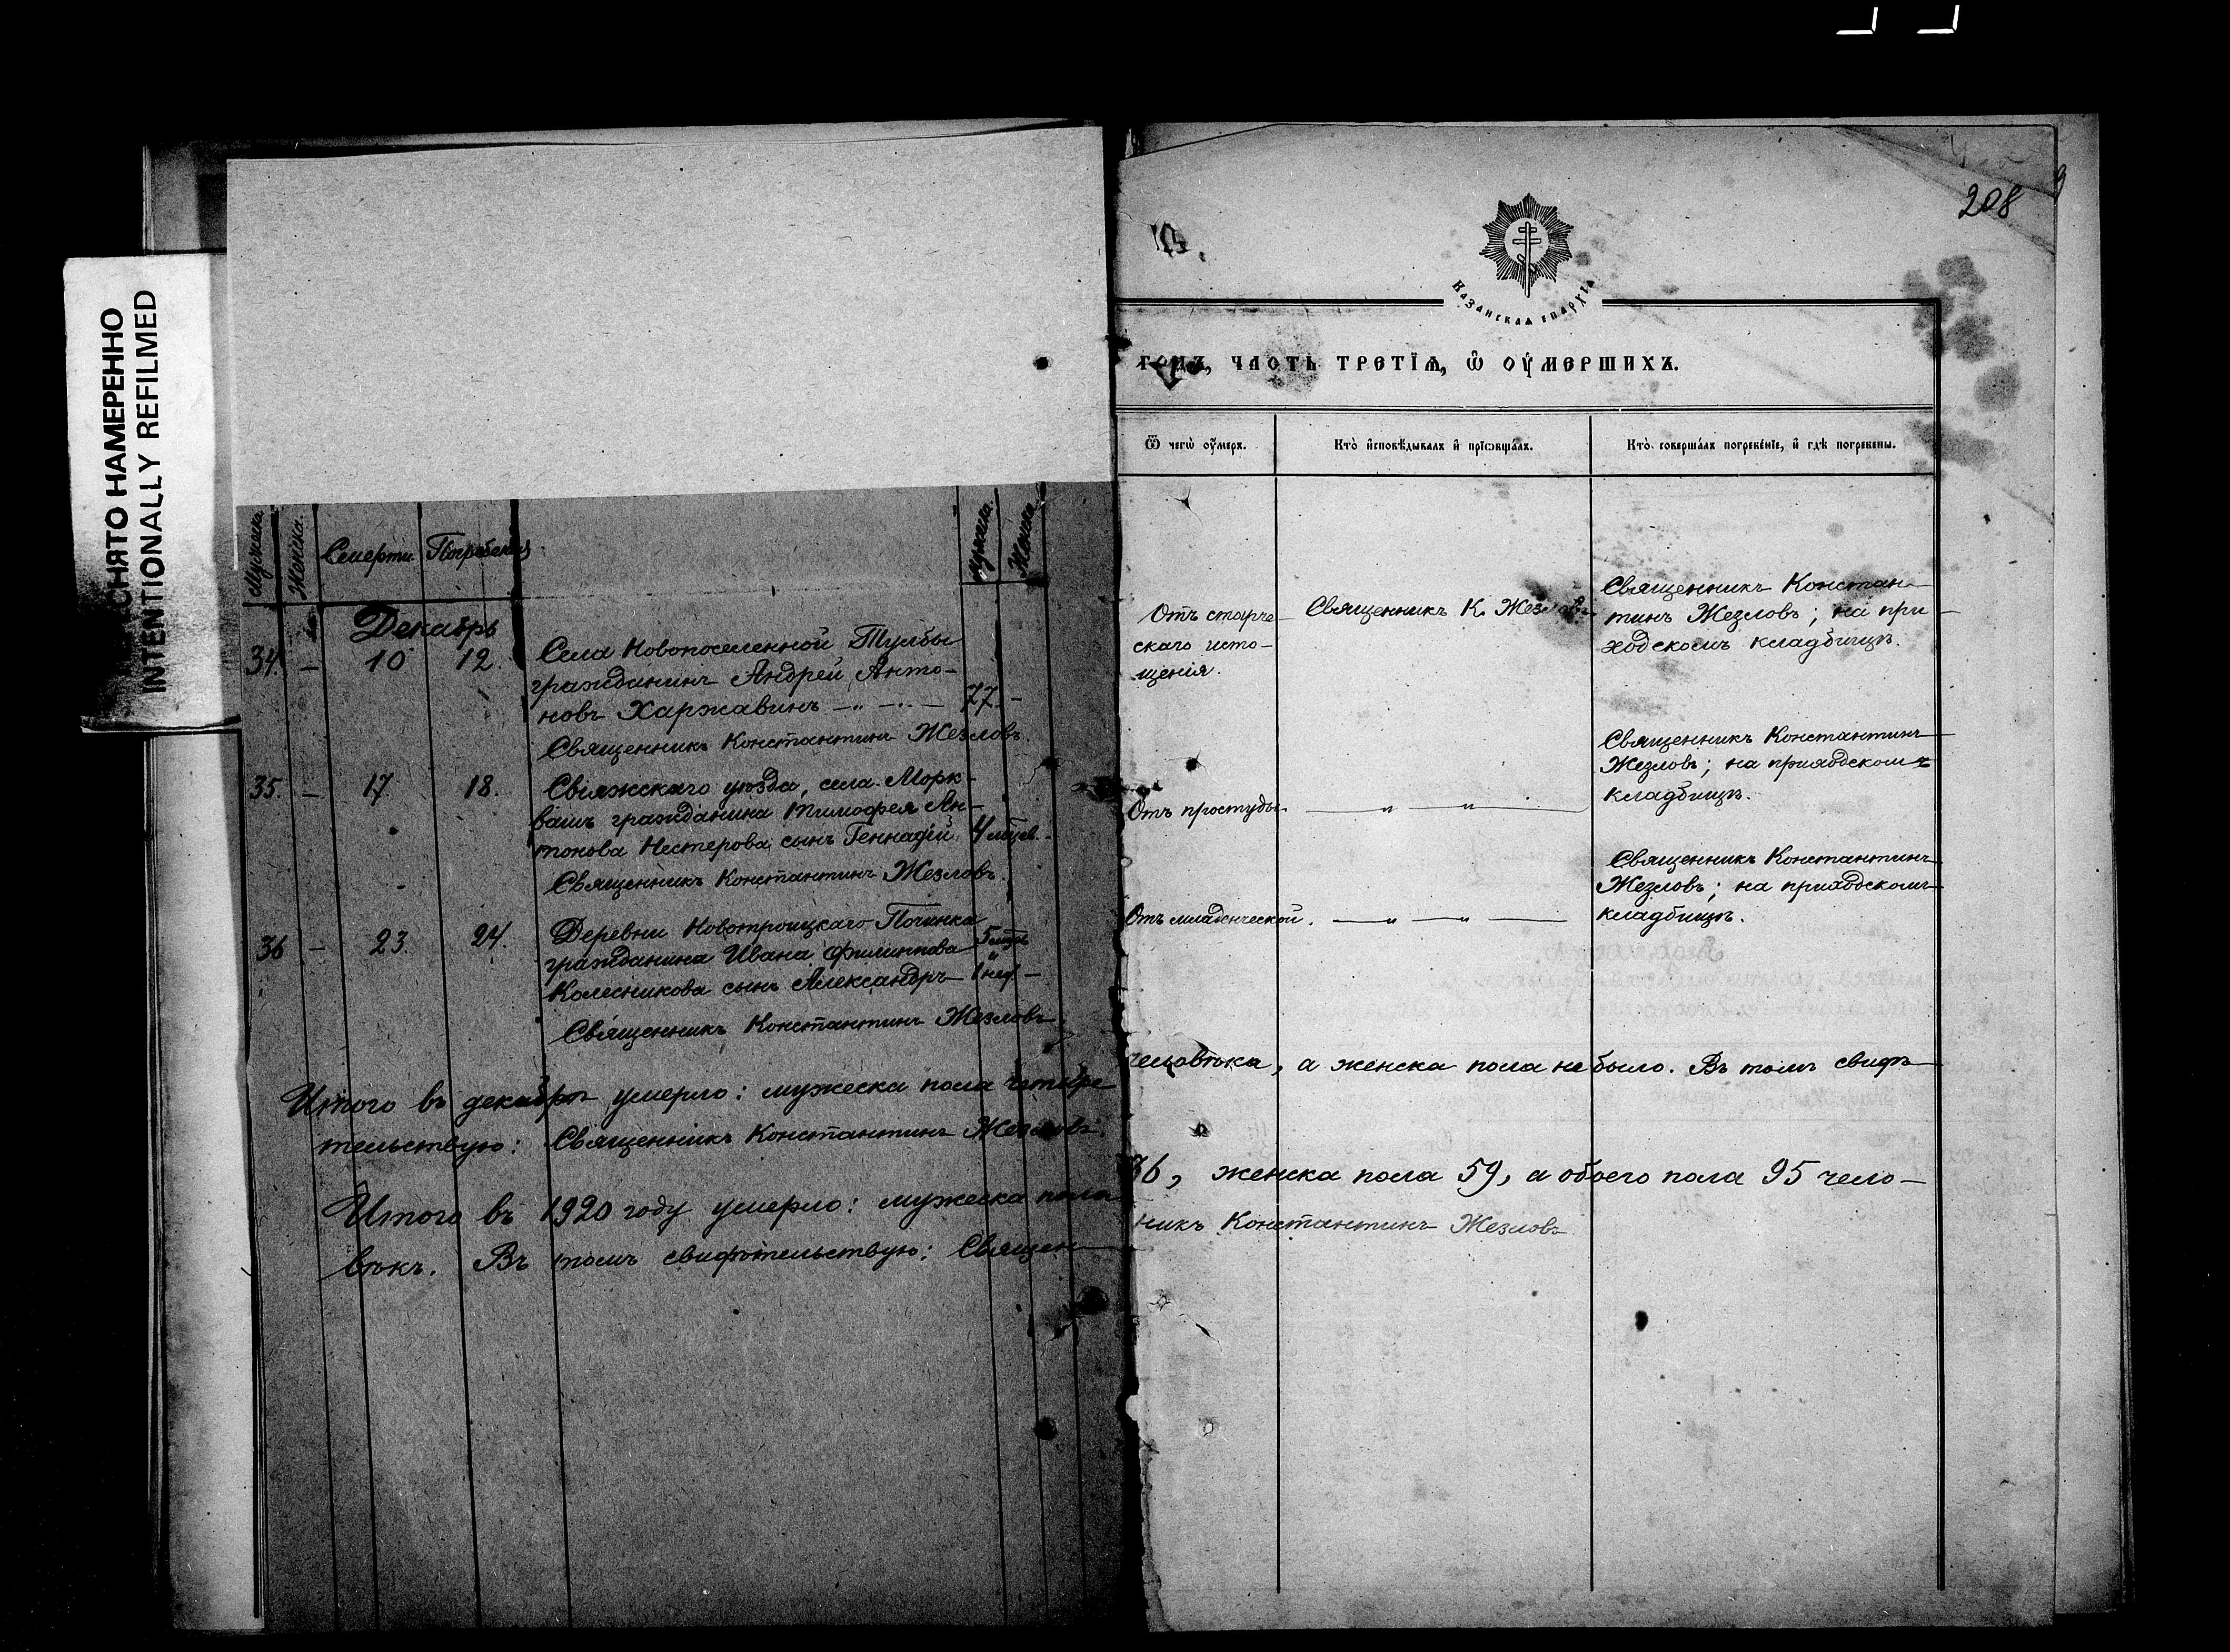 СНЯТО НАМЕРЕННО
INTENTIONALLY REFILMED
208
КАЗАНСКАѦ ЕПАРХІѦ
ГОДЪ, ЧАСТЬ ТРЕТІѦ, Ѡ ОУМЕРШИХЪ.
Мужеска.
Женска.
Смерти.
Погребенія
Мужеска.
Женска.
Ѿ чегѡ оумеръ.
Кто исповѣдывалъ и пріѡбщалъ.
Кто совершалъ погребеніе, и гдѣ погребены.
Декабрь
34. – 10 12. Села Новопоселенной Тумбы
гражданинъ Андрей Анто-
новъ Харжавинъ 77. –
Священникъ Константинъ Жезловъ.
Отъ старче-
скаго исто-
щенія.
Священникъ К. Жезловъ
Священникъ Констан-
тинъ Жезловъ; на при-
ходскомъ кладбищѣ.
35. – 17 18. Свіяжскаго уѣзда, села Морк-
вашъ гражданина Тимофея Ан-
тонова Нестерова сынъ Геннадій 4 мѣсяц. -
Священникъ Константинъ Жезловъ.
Отъ простуды. — „ — „ —
Священникъ Константинъ
Жезловъ; на приходскомъ
кладбищѣ.
36 – 23. 24. Деревни Новотроицкаго Починка
гражданина Ивана Филиппова
Колесникова сынъ Александръ 1 нед. –
Священникъ Константинъ Жезловъ
Отъ младенческой. — „ — „ —
Священникъ Константинъ
Жезловъ; на приходскомъ
кладбищѣ.
Итого въ декабрѣ умерло: мужеска пола четыре человѣка, а женска пола не было. Въ томъ свидѣ-
тельствую: Священникъ Константинъ Жезловъ.
Итого въ 1920 году умерло: мужеска пола 36, женска пола 59, а обоего пола 95 чело-
вѣкъ. Въ томъ свидѣтельствую: Священ-никъ Константинъ Жезловъ